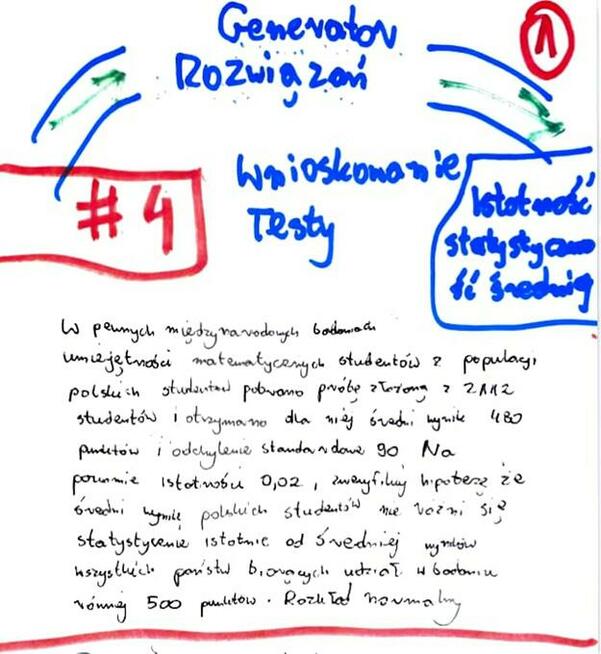 Generator
Rozwiązań
1
#4
Wnioskowanie
Testy
Istotność
statystyczno
ść średniej
W pewnych międzynarodowych badaniach
umiejętności matematycznych studentów z populacji
polskich studentów pobrano próbę złożoną z 2112
studentów i otrzymano dla niej średni wynik 480
punktów i odchylenie standardowe 90 Na
poziomie istotności 0,02, zweryfikuj hipotezę że
średni wynik polskich studentów nie różni się
statystycznie istotnie od średniej wyników
wszystkich państw biorących udział w badaniu
równej 500 punktów. Rozkład normalny